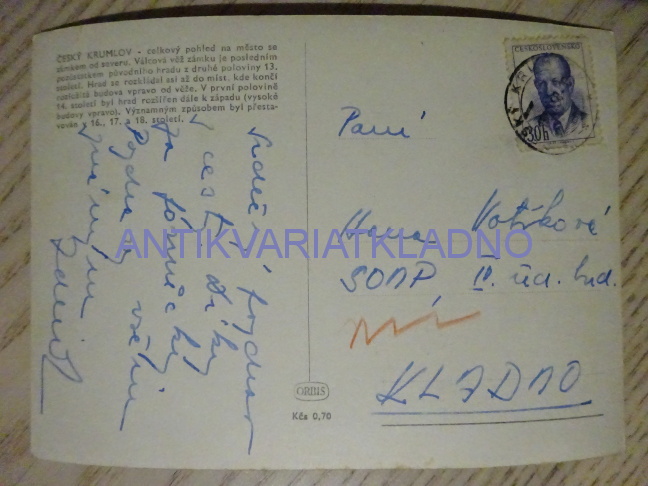 ČESKÝ KRUMLOV - celkový pohled na město se
zámkem od severu. Válcová věž zámku je posledním
pozůstatkem původního hradu z druhé poloviny 13.
století. Hrad se rozkládal asi až do míst, kde končí
rozlehlá budova vpravo od věže. V první polovině
14. století byl hrad rozšířen dále k západu (vysoké
budovy vpravo). Významným způsobem byl přesta-
vován v 16., 17. a 18. století.
Srdečný pozdrav
z cesty, díky
za
Pozdrav všem
známým
Zdeněk
ČESKOSLOVENSKO
30h
Paní
Hana Votíková
SONP IV. úd. bud.
KLADNO
ORBIS
Kčs 0,70
ANTIKVARIATKLADNO